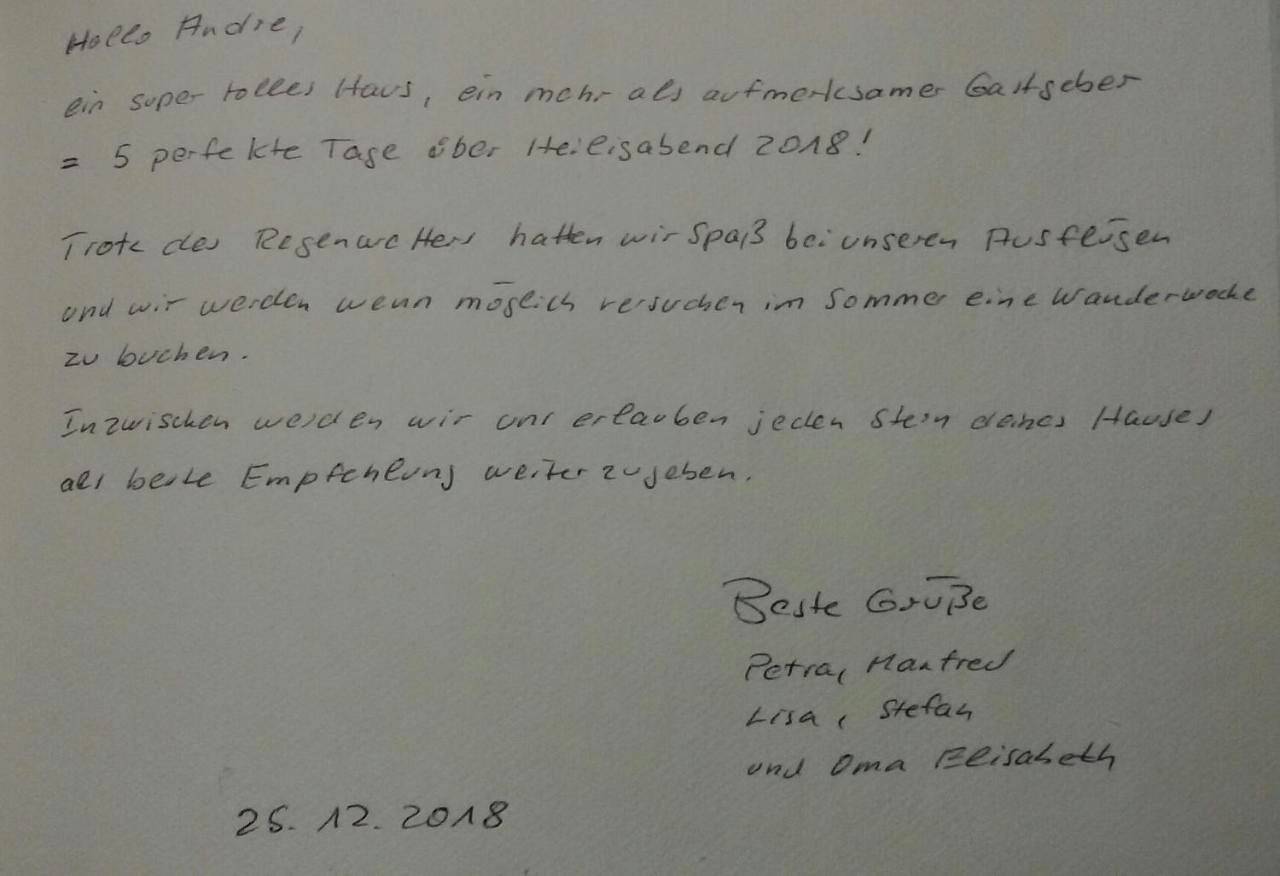 Hallo Andre,
ein super tolles Haus, ein mehr als aufmerksamer Gastgeber
= 5 perfekte Tage über Heiligabend 2018!
Trotz des Regenwetters hatten wir Spaß bei unseren Ausflügen
und wir werden wenn möglich versuchen im Sommer eine Wanderwoche
zu buchen.
Inzwischen werden wir uns erlauben jeden Stein deines Hauses
als beste Empfehlung weiterzugeben.
Beste Grüße
Petra, Manfred
Lisa, Stefan
und Oma Elisabeth
26.12.2018